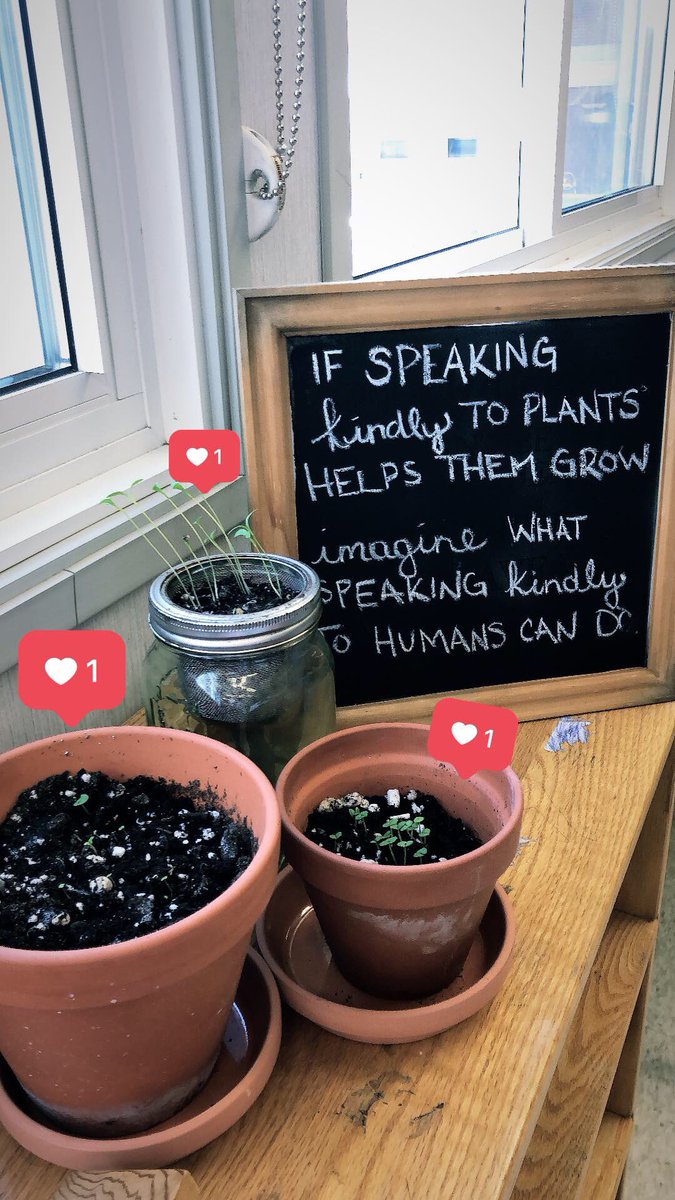 IF SPEAKING
kindly TO PLANTS
HELPS THEM GROW
imagine WHAT
SPEAKING kindly
TO HUMANS CAN DO
1
1
1